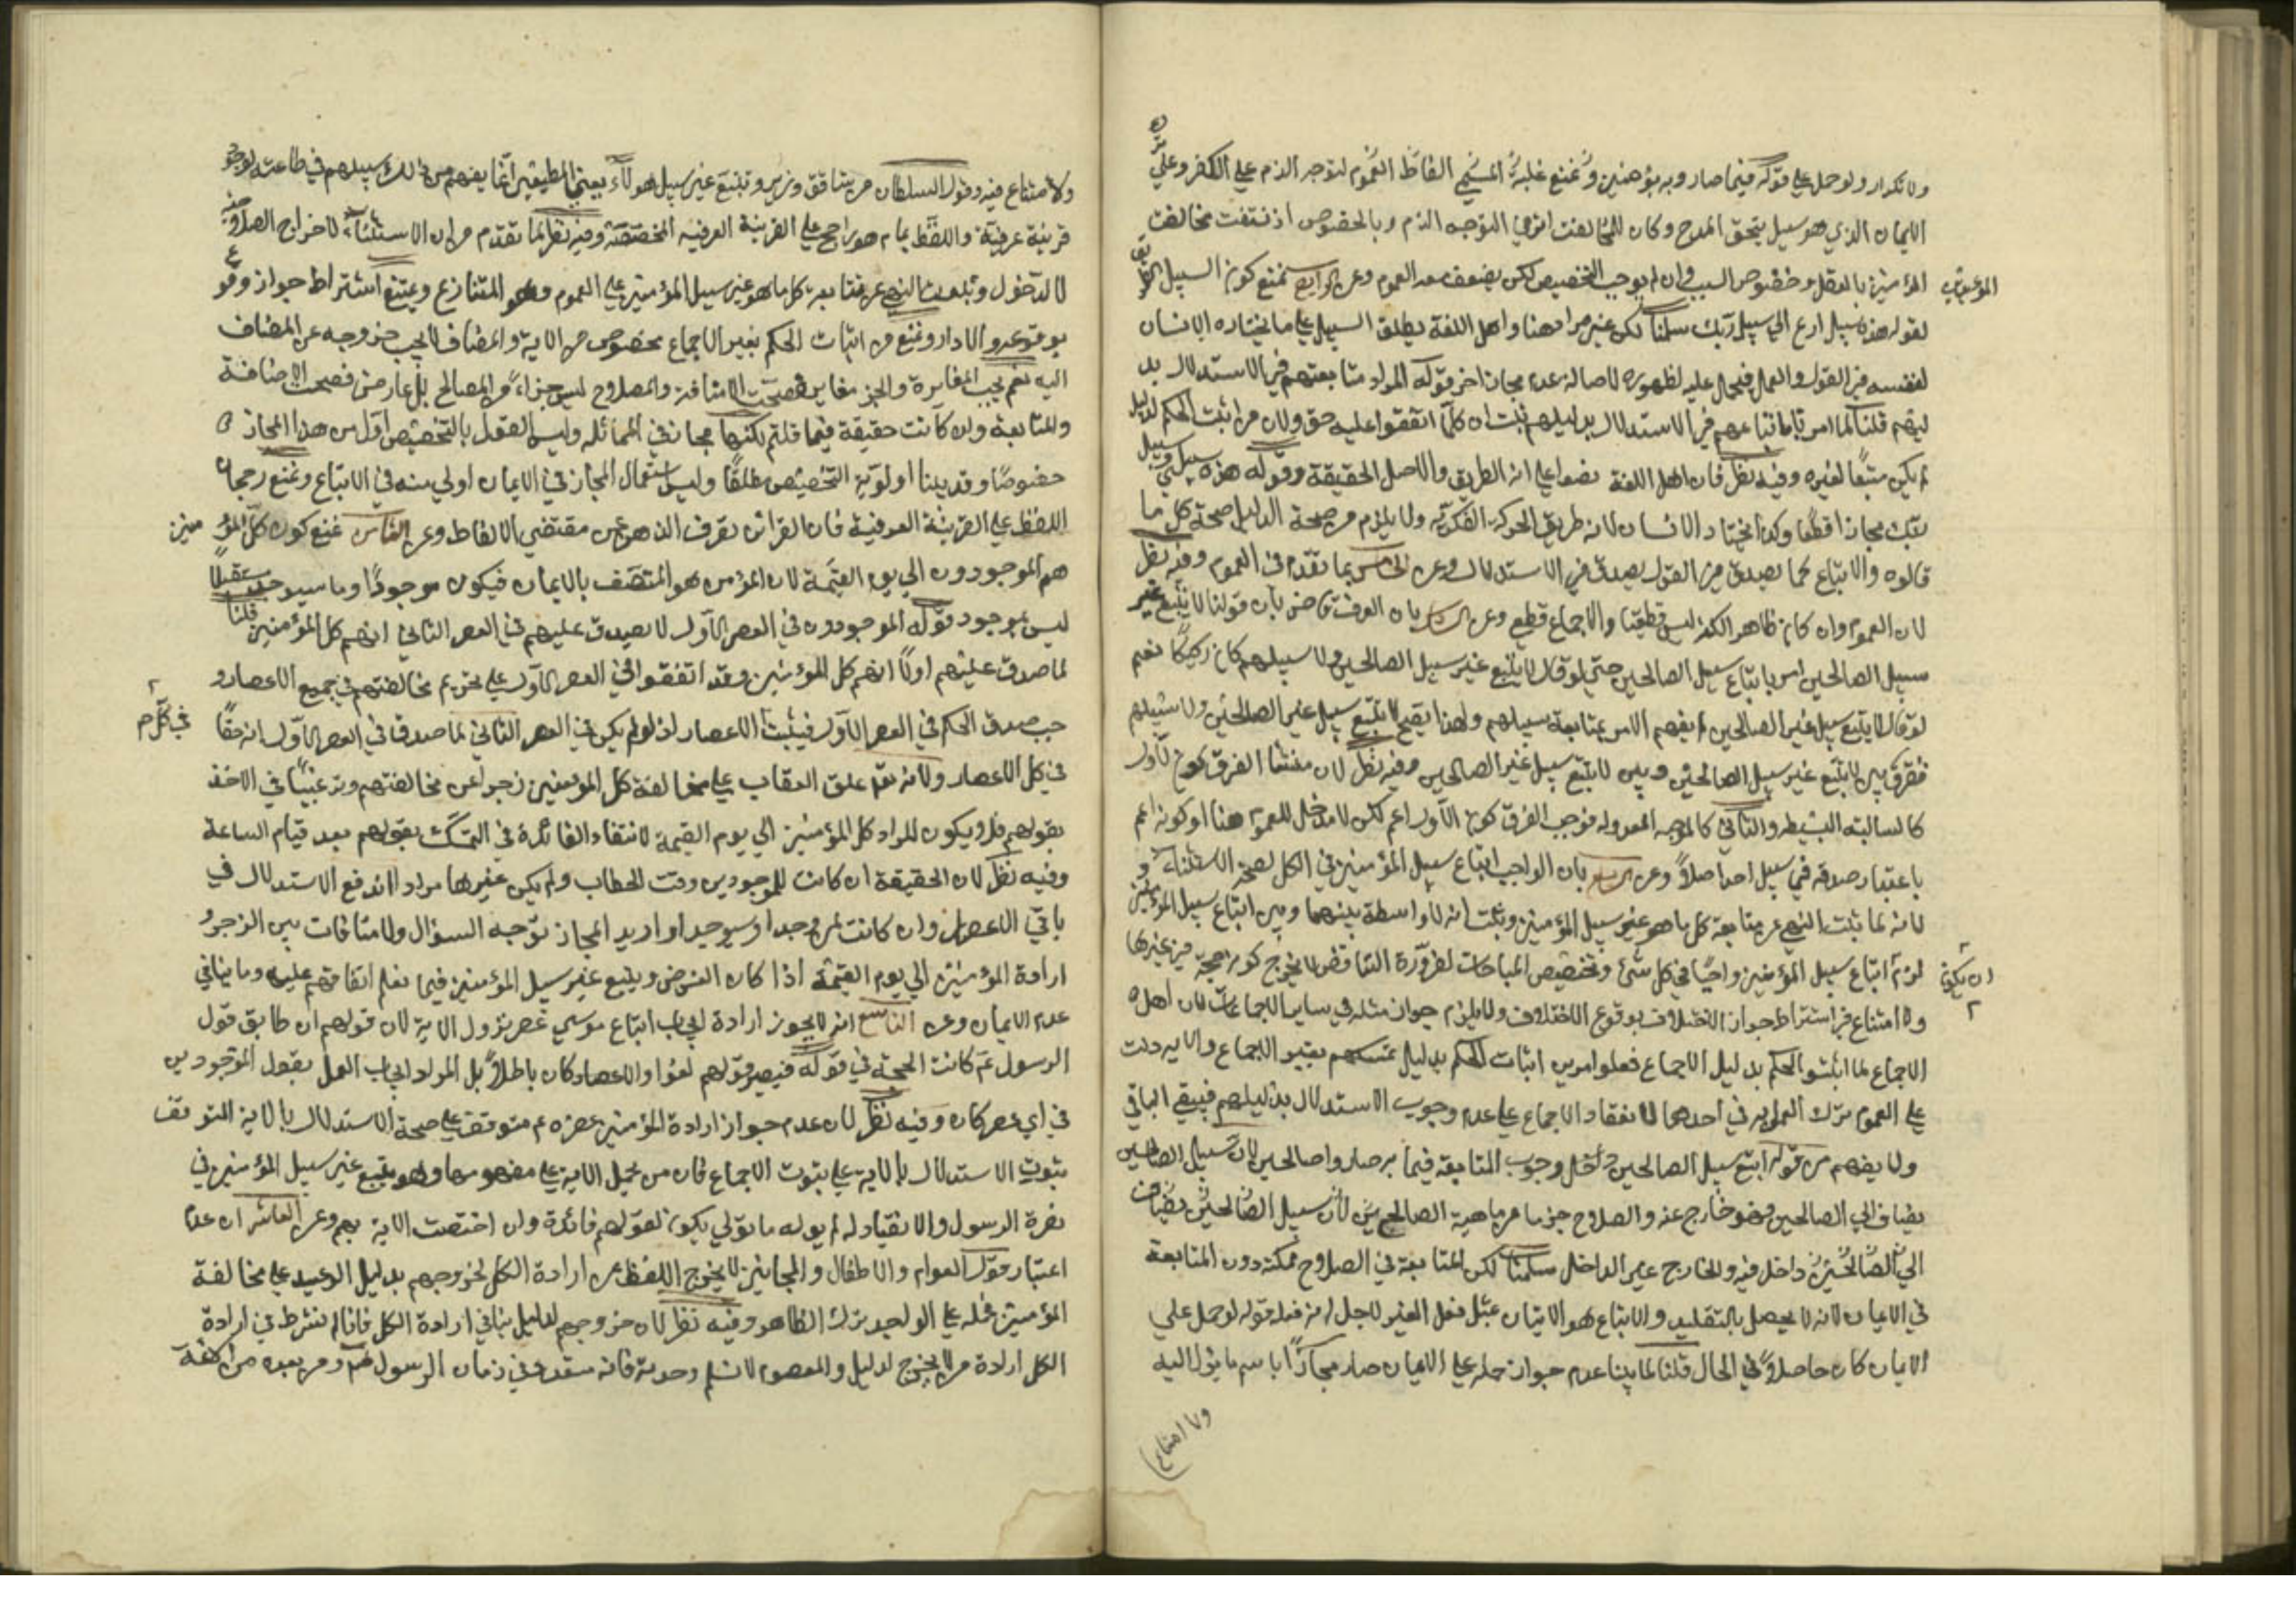 ولا تكرار ولو حمل على قوله فيما صاروا به مؤمنين ونمنع غلبة الفاظ العموم لتوجه الذم على الكفر وعلى
الايمان الذي هو سبيل يتحقق المدح وكان للمخالفت اثر في التوجه الذم وبالخصوص اذ نتفت مخالفت
المؤمنين بالعقل وخصوص السبب وان لم يوجب التخصيص لكن يضعف معه العموم وعن الرابع نمنع كون السبيل الطريق
لقوله هذه سبيلي ادع الى سبيل ربك سلمنا لكن غير مراد هنا واهل اللغة يطلق السبيل على ما يختاره الانسان
لنفسه من القول والعمل فيحمل عليه لظهوره لاصالة عدم مجاز اخر قوله المراد متابعتهم في الاستدلال بد
ليلهم قلنا لما امر باتباعهم في الاستدلال بدليلهم ثبت ان كلما اتفقوا عليه حق ولان من اثبت الحكم لدليل
لم يكن متبعا لغيره وفيه نظر فان اهل اللغة نصوا على انه الطريق والاصل الحقيقة وقوله هذه سبيلي وسبيل
ربك مجازا قطعا وكذا مختار الانسان لانه طريق الحركة الفكرية ولا يلزم من صحة الدليل صحة كل ما
قالوه والاتباع كما يصدق في القول يصدق في الاستدلال وعن الخامس بما تقدم في العموم وفيه نظر
لان العموم وان كان ظاهر الكنه ليس قطعيا والاجماع قطعي وعن السادس بان العرف قاض بان قولنا لا يتبع غير
سبيل الصالحين امر باتباع سبيل الصالحين حتى لو قال لا يتبع غير سبيل الصالحين ولا سبيلهم كان ركيكا نعم
لو قال لا يتبع سبيل غير الصالحين لم يفهم الامر بمتابعة سبيلهم ولهذا يقبح لا تتبع سبيل غير الصالحين ولا سبيلهم
ففرق بين لا يتبع غير سبيل الصالحين وبين لا يتبع سبيل غير الصالحين وفيه نظر لان منشا الفرق كون الاول
كالسالبة البسيطه والثاني كالموجبه المعدوله فوجب الفرق كون الاول اعم لكن لا مدخل للعموم هنا او كونه اعم
باعتبار صدقه في سبيل احد اصلا وعن السابع بان الواجب اتباع سبيل المؤمنين في الكل لصحة الاستثناء و
لانه لما ثبت النهي عن متابعة كل ما هو غير سبيل المؤمنين وثبت انه لا واسطة بينهما وبين اتباع سبيل المؤمنين
لزم ان يكون اتباع سبيل المؤمنين واجبا في كل شئ وتخصيص المباحات لضرورة التناقض لا يخرج كونه حجة في غيرها
ولا امتناع في اشتراط جواز الاختلاف بوقوع الاختلاف ولا يلزم جواز مثله في سائر الاجماعات لان اهل
الاجماع لما اثبتوا الحكم بدليل الاجماع فعلوا امرين اثبات الحكم بدليل تمسكهم بغير الاجماع والايه دلت
على العموم ترك العمل به في احدهما لانعقاد الاجماع على عدم وجوب الاستدلال بدليلهم فيبقى الباقي
ولا يفهم من قوله اتبع سبيل الصالحين داخل وجوب المتابعة فيما به صاروا صالحين لان سبيل الصالحين
يضاف الى الصالحين فهو خارج عنه والصلاح جزء من ماهية الصالحين لان سبيل الصالحين يضاف
الى الصالحين داخل فيه والخارج غير الداخل سلمنا لكن المتابعة في الصلاح ممكنة دون المتابعة
في الايمان لانه لا يحصل بالتقليد والاتباع هو الاتيان بمثل فعل الغير لاجل انه فعله قوله لو حمل على
الايمان كان حاصلا في الحال قلنا لما بينا عدم جواز حمله على الايمان صار مجازا باسم ما يؤل اليه
ولا امتناع
ولا امتناع فيه وقول السلطان من يشاقق وزيري ويتبع غير سبيل هولاء يعني المطيعين انما يفهم من ذلك سبيلهم في طاعته لوجود
قرينة عرفية واللفظ عام هو راجح على القرينة العرفيه المخصصة وفيه نظر لما تقدم من ان الاستثناء لاخراج الصلاحية
لا لدخول وتمنعت النهي عن متابعة كل ما هو غير سبيل المؤمنين على العموم وهو المتنازع ويمتنع اشتراط جواز وقوع
بوقوعه والا دار ونمنع من اثبات الحكم بغير الاجماع مخصوص من الاية والمضاف لا يجب خروجه عن المضاف
اليه نعم يجب المغايرة والجزء مغاير فصحت الاضافة والصلاح ليس جزاء من المصالح بل عارض فصحت الاضافة
والمتابعة وان كانت حقيقة فيما قلتم لكنها مجاز في المماثله وليس القول بالتخصيص اولى من هذا المجاز
خصوصا وقد بينا اولوية التخصيص مطلقا وليس استعمال المجاز في الايمان اولى منه في الاتباع ونمنع رجحان
اللفظ على القرينة العرفية فان القرائن تعرف الذهن عن مقتضى الالفاظ وعن الثامن نمنع كون كل المؤمنين
هم الموجودون الى يوم القيمة لان المؤمن هو المتصف بالايمان فيكون موجودا وما سيوجد مستقبلا
ليس بموجود قوله الموجودون في العصر الاول لا يصدق عليهم في العصر الثاني انهم كل المؤمنين قلنا
لما صدق عليهم اولا انهم كل المؤمنين وقد اتفقوا في العصر الاول على تحريم مخالفتهم في جميع الاعصار و
جب صدق الحكم في العصر الاول فيثبت في كل الاعصار اذ لو لم يكن في العصر الثاني لما صدق في العصر الاول انه حقا
في كل الاعصار ولانه تعالى علق العقاب على مخالفة كل المؤمنين زجرا عن مخالفتهم وترغيبا في الاخذ
بقولهم فلا يكون المراد كل المؤمنين الى يوم القيمة لانتفاء الفائدة في التمسك بقولهم بعد قيام الساعة
وفيه نظر لان الحقيقة ان كانت للموجودين وقت الخطاب ولم يكن غيرها مرادا اندفع الاستدلال في
باقي الاعصار وان كانت لمن وجد او سيوجد او اريد المجاز توجه السؤال ولا منافات بين الزجر و
ارادة المؤمنين الى يوم القيمة اذا كان الغرض ويتبع غير سبيل المؤمنين فيما نعلم اتفاقهم عليه وما ينافي
عدم الايمان وعن التاسع انه لا يجوز ارادة ايجاب اتباع موسى عصر نزول الاية لان قولهم ان طابق قول
الرسول عم كانت الحجة في قوله فيصير قولهم لغوا والا عصار كان باطلا بل المراد ايجاب العمل بقول الموجودين
في اي عصر كان وفيه نظر لان عدم جواز ارادة المؤمنين عصره عم متوقف على صحة الاستدلال بالاية المتوقف
بثبوت الاستدلال بالاية على ثبوت الاجماع فان من يحمل الاية على مفهومها وهو يتبع غير سبيل المؤمنين في
نصرة الرسول والانقياد له لم يوله ما تولى يكون لقولهم فائدة وان اختصت الاية بهم وعن العاشر ان عدم
اعتبار قول العوام والاطفال والمجانين لا يخرج اللفظ عن ارادة الكل لخروجهم بدليل الوعيد على مخالفة
المؤمنين فحمله على الواحد ترك الظاهر وفيه نظر لان خروجهم لدليل ينافي ارادة الكل فانا لم نشرط في ارادة
الكل ارادة من لا يخرج لدليل والمعصوم لا نسلم وحدته فانه متعدد في زمان الرسول عم ومن بعده